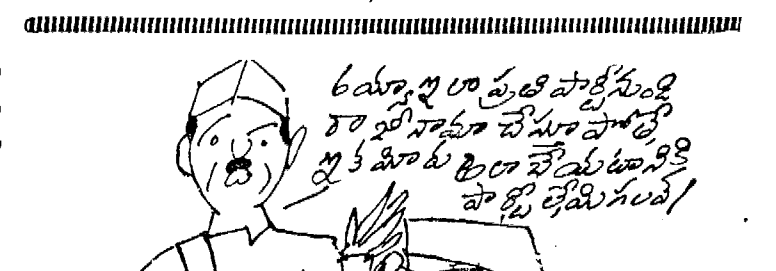 అయ్యా ఇలా ప్రతి పార్టీనుండి
రాజీనామా చేస్తూ పోతే
ఇక మీరు ఇలా చేయటానికి
పార్టీలేమిగలవ్!